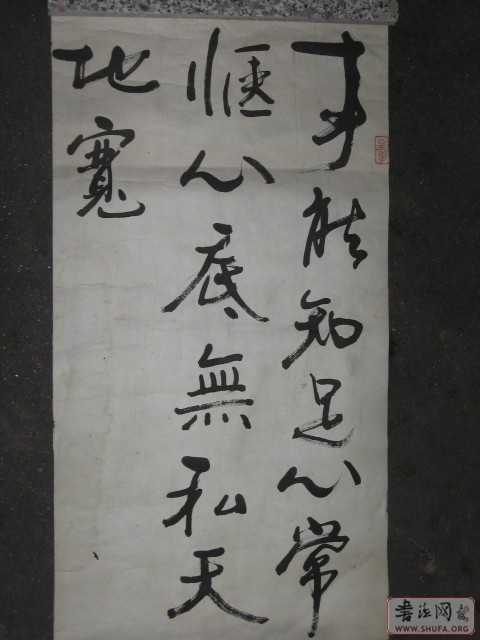 事能知足心常
惬心底無私天
地寬
书法网
WWW.SHUFA.ORG